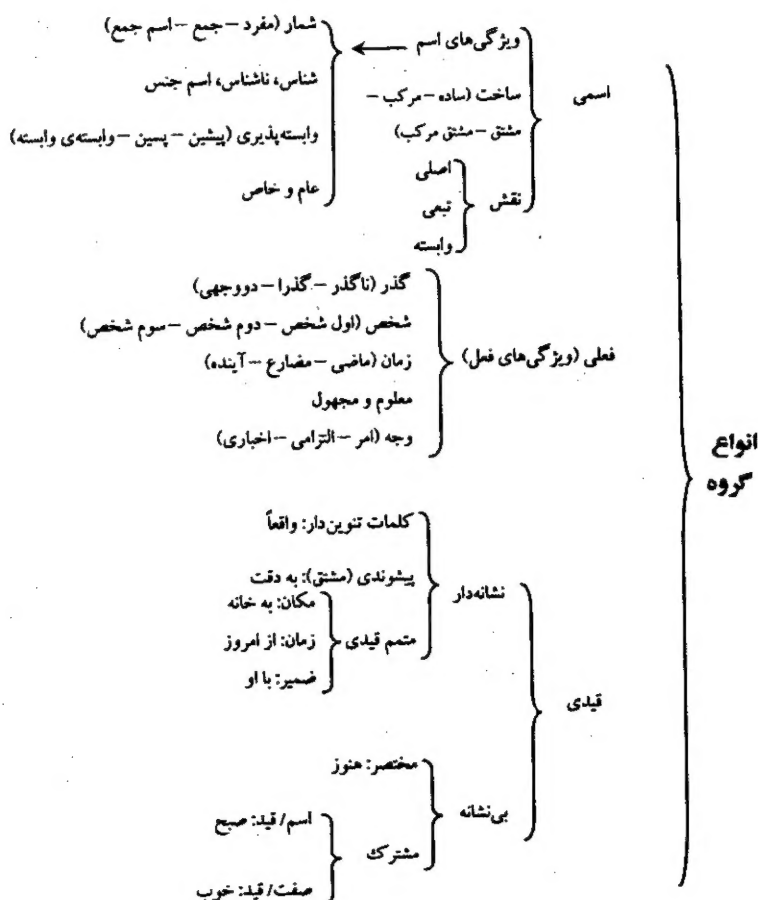 انواع
گروه
اسمی
ویژگی‌های اسم
شمار (مفرد – جمع – اسم جمع)
شناس، ناشناس، اسم جنس
وابسته‌پذیری (پیشین – پسین – وابسته‌ی وابسته)
عام و خاص
ساخت (ساده – مرکب –
مشتق – مشتق مرکب)
نقش
اصلی
تبعی
وابسته
فعلی (ویژگی‌های فعل)
گذر (ناگذر – گذرا – دووجهی)
شخص (اول شخص – دوم شخص – سوم شخص)
زمان (ماضی – مضارع – آینده)
معلوم و مجهول
وجه (امر – التزامی – اخباری)
قیدی
نشانه‌دار
کلمات تنوین‌دار: واقعاً
پیشوندی (مشتق): به دقت
متمم قیدی
مکان: به خانه
زمان: از امروز
ضمیر: با او
بی‌نشانه
مختصر: هنوز
مشترک
اسم/ قید: صبح
صفت/ قید: خوب